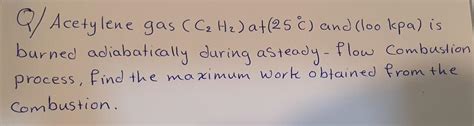 Q/ Acetylene gas (C₂ H₂) at (25 °C) and (100 kpa) is
burned adiabatically during a steady-flow Combustion
process, find the maximum work obtained from the
Combustion.